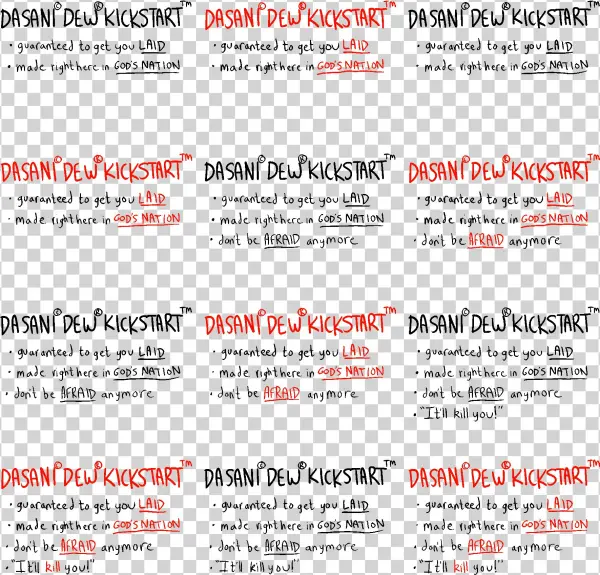 DASANI© DEW® KICKSTART™
• guaranteed to get you LAID
• made right here in GOD'S NATION
DASANI© DEW® KICKSTART™
• guaranteed to get you LAID
• made right here in GOD'S NATION
DASANI© DEW® KICKSTART™
• guaranteed to get you LAID
• made right here in GOD'S NATION
DASANI© DEW® KICKSTART™
• guaranteed to get you LAID
• made right here in GOD'S NATION
DASANI© DEW® KICKSTART™
• guaranteed to get you LAID
• made right here in GOD'S NATION
• don't be AFRAID anymore
DASANI© DEW® KICKSTART™
• guaranteed to get you LAID
• made right here in GOD'S NATION
• don't be AFRAID anymore
DASANI© DEW® KICKSTART™
• guaranteed to get you LAID
• made right here in GOD'S NATION
• don't be AFRAID anymore
DASANI© DEW® KICKSTART™
• guaranteed to get you LAID
• made right here in GOD'S NATION
• don't be AFRAID anymore
DASANI© DEW® KICKSTART™
• guaranteed to get you LAID
• made right here in GOD'S NATION
• don't be AFRAID anymore
• "It'll kill you!"
DASANI© DEW® KICKSTART™
• guaranteed to get you LAID
• made right here in GOD'S NATION
• don't be AFRAID anymore
• "It'll kill you!"
DASANI© DEW® KICKSTART™
• guaranteed to get you LAID
• made right here in GOD'S NATION
• don't be AFRAID anymore
• "It'll kill you!"
DASANI© DEW® KICKSTART™
• guaranteed to get you LAID
• made right here in GOD'S NATION
• don't be AFRAID anymore
• "It'll kill you!"